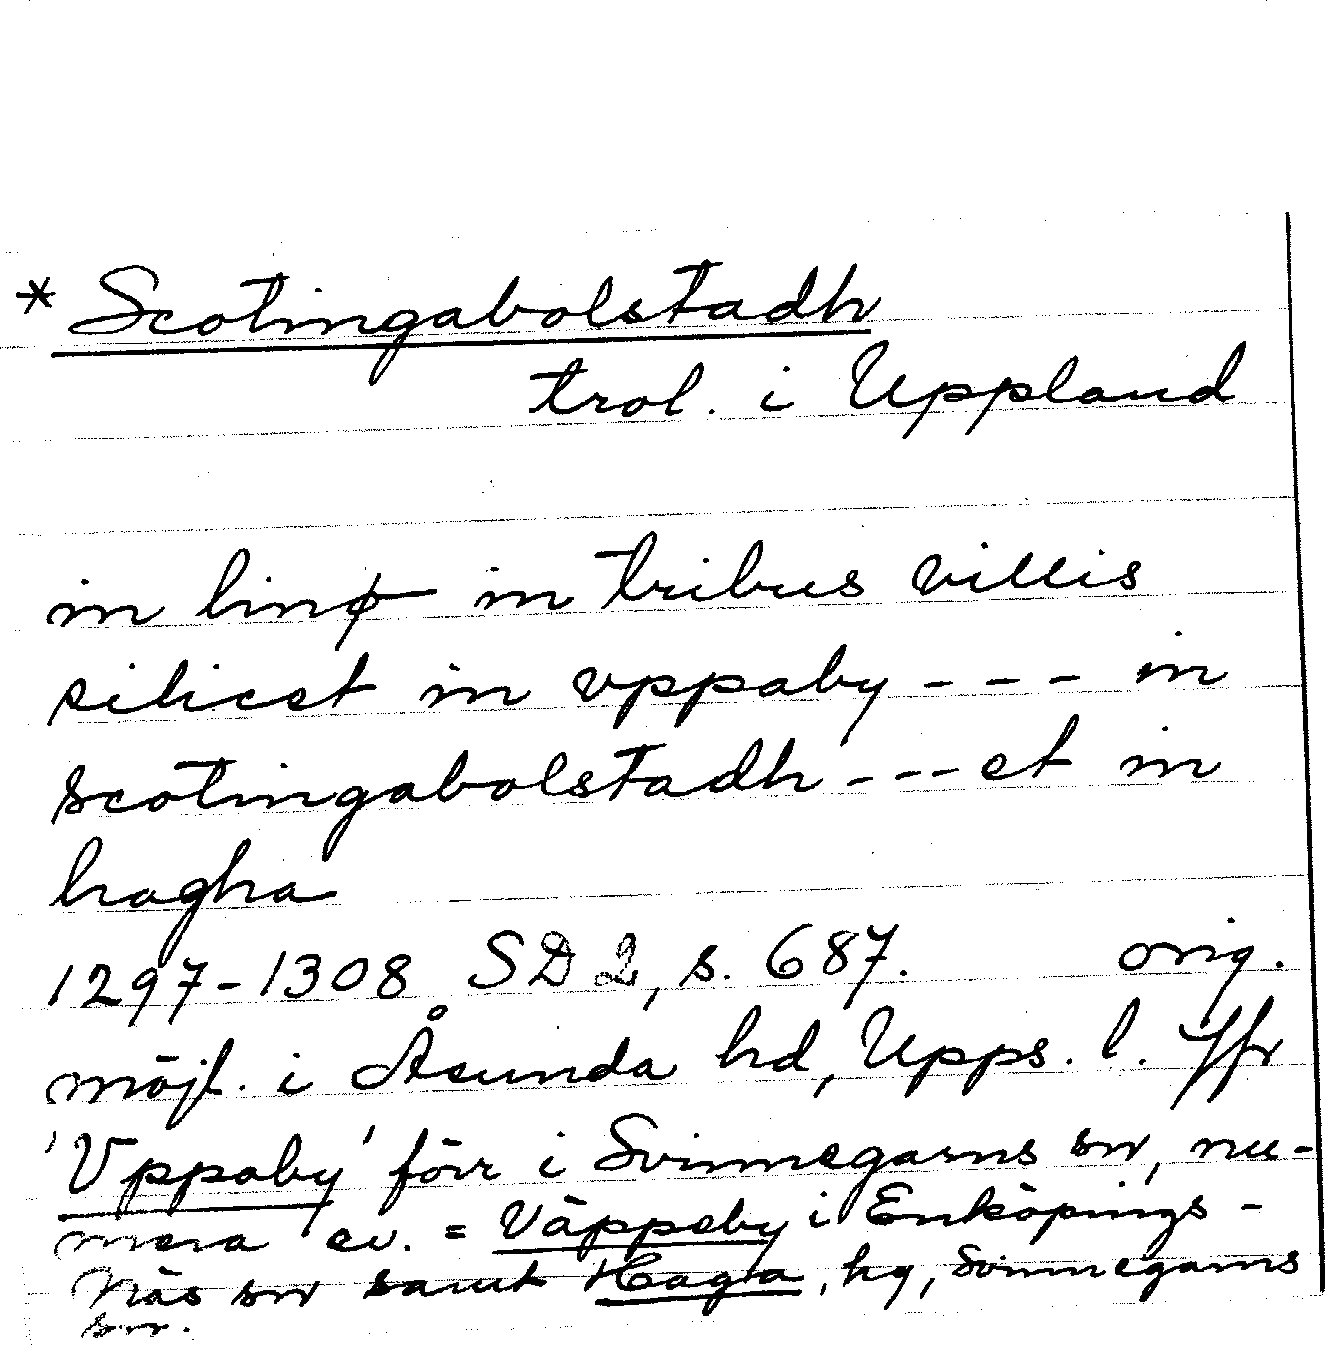 * Scotingabolstadh
trol. i Uppland
in hinꝑ in tribus villis
silicet in vppaby - - - in
scotingabolstadh - - - et in
hagha
1297-1308 SD 2, s. 687. orig.
möjl. i Åsunda hd, Upps. l. Jfr
'Vppaby' förr i Svinnegarns sn, nu-
mera ev. = Väppeby i Enköpings-
Näs sn samt Haga, hg, Svinnegarns
sn.